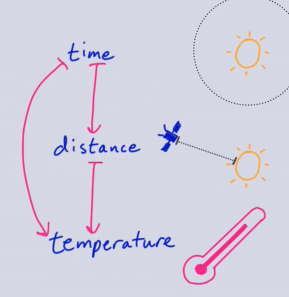 time
distance
temperature